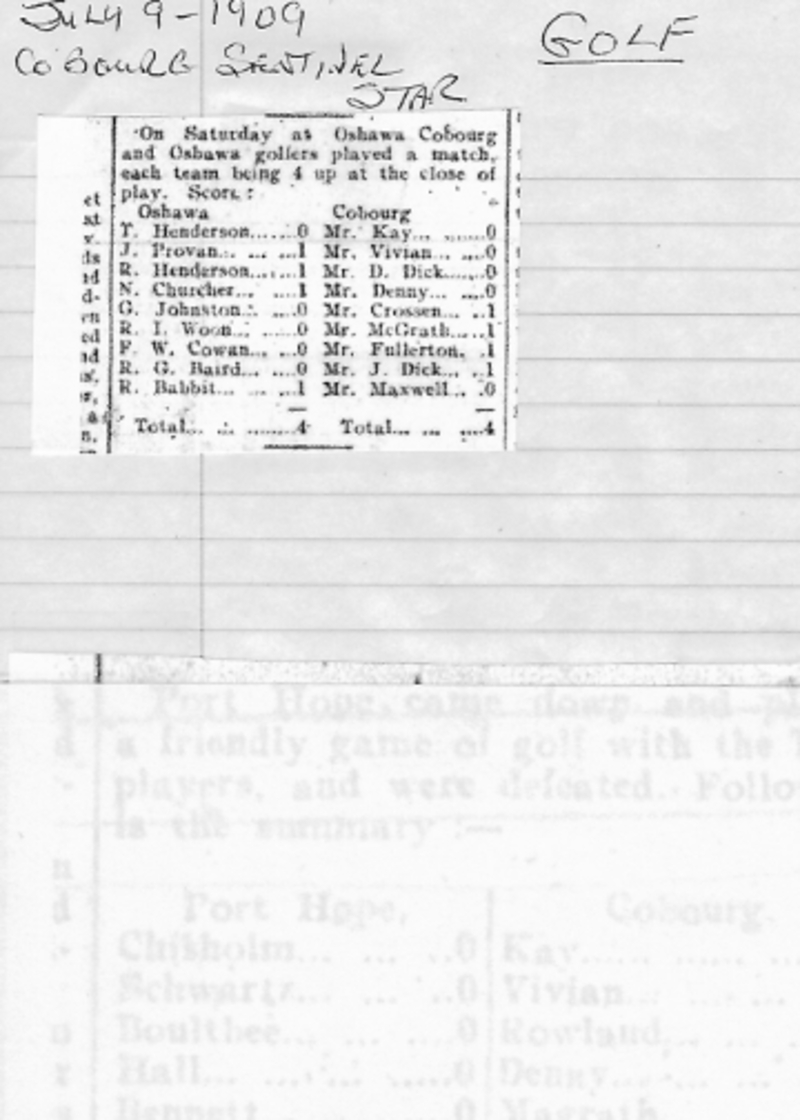 JULY 9-1909
GOLF
COBOURG SENTINEL
STAR
On Saturday at Oshawa Cobourg
and Oshawa golfers played a match,
each team being 4 up at the close of
play. Score:
Oshawa Cobourg
T. Henderson......0 Mr. Kay... ......0
J. Provan... ... ...1 Mr. Vivian... ....0
R. Henderson......1 Mr. D. Dick......0
N. Churcher... ...1 Mr. Denny... ....0
G. Johnston... ...0 Mr. Crossen... ..1
R. I. Woon... ......0 Mr. McGrath.....1
F. W. Cowan... ...0 Mr. Fullerton. .1
R. G. Baird... ....0 Mr. J. Dick... ..1
R. Babbit... ... ...1 Mr. Maxwell.. .0
Total... ... ........4 Total... ... ....4
et
at
v.
ds
nd
d-
en
ed
nd
n.
Port Hope came down and pl
a friendly game of golf with the T
players, and were defeated. Follo
is the summary :—
Port Hope. Cobourg.
Chisholm... ... ..0 Kay...... ...... ...
Schwartz... ... ..0 Vivian... ... ...
Boulthee... ... ....0 Rowland... ... .
Hall... ... ... .....0 Denny... ... ...
Bennett... ... ...0 Magrath